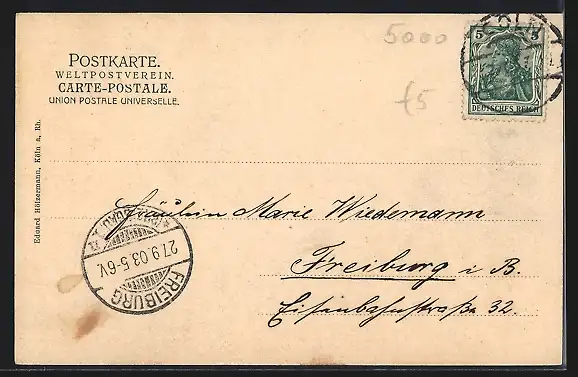 5000
£5
5 5
DEUTSCHES REICH
POSTKARTE.
WELTPOSTVEREIN.
CARTE-POSTALE.
UNION POSTALE UNIVERSELLE.
Eduard Hölzermann, Köln a, Rh.
Fräulein Marie Wiedemann
Freiburg i B.
Eisenbahnstraße 32.
27.9.03.5-6V.
FREIBURG